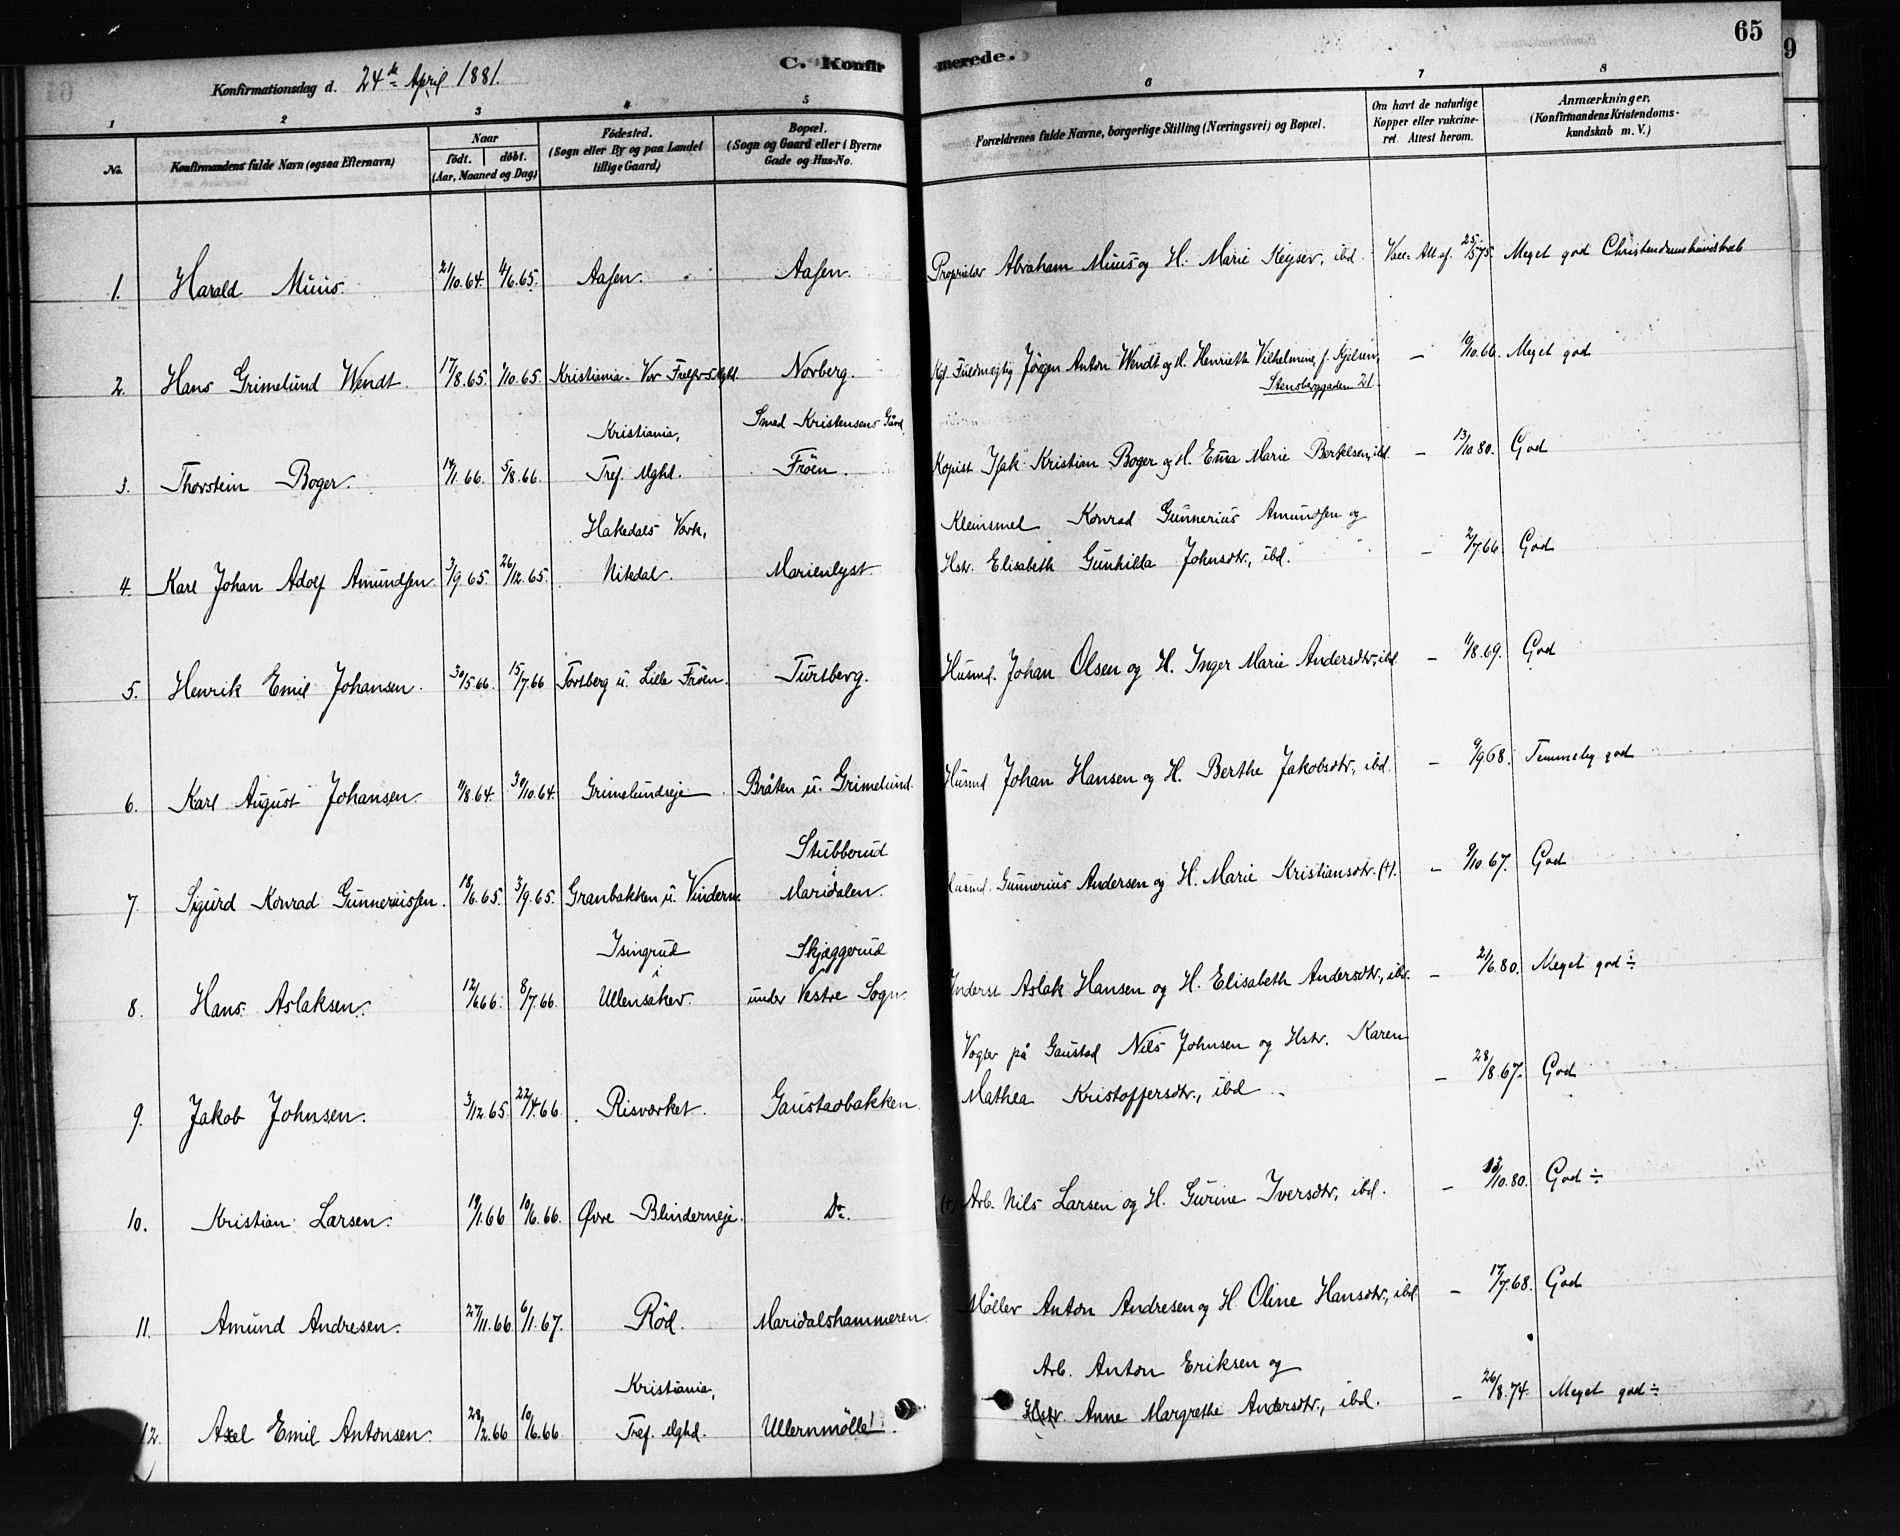 65
9
C. Konfirmerede.
Konfirmationsdag d. 24de April 1881.
1 2 3 4 5 6 7 8
No.
Konfirmandens fulde Navn (ogsaa Efternavn)
Naar
født. døbt.
(Aar, Maaned og Dag)
Fødested.
(Sogn eller By og paa Landet
tillige Gaard)
Bopæl.
(Sogn og Gaard eller i Byerne
Gade og Hus-No.
Forældrenes fulde Navne, borgerlige Stilling (Næringsvei) og Bopæl.
Om havt de naturlige
Kopper eller vakcine-
ret Attest herom.
Anmærkninger,
(Konfirmandens Kristendoms-
kundskab m. V.)
1. Harald Muus. 21/10.64. 4/6.65. Aasen. Aasen. Proprietær Abraham Muus og H. Marie Keyser, ibd. Vacc. Att. af 25/5 75. Meget god Christendomskundskab
2. Hans Grimelund Wendt. 17/8.65. 1/10.65. Kristiania. Vor Frelsers Mghd. Norberg. Kgl. Fuldmægtig Jørgen Anton Wendt og H. Henriette Vilhelmine, f. Kjelsen,
Stensberggaden 21. — 10/10.66. Meget god
Kristiania, Smed Kristensens Gård,
3. Thorstein Boger. 14/1.66. 5/8.66. Tref. Mghd. Frøen. Kopist Isak Kristian Boger og H. Ema Marie Bertelsen, ibd. — 13/10 80. God
Hakedals Værk, Kleinsmed Konrad Gunnerius Amundsen og
4. Karl Johan Adolf Amundsen. 3/9.65. 26/12.65. Nitedal. Marienlyst. Hstr. Elisabeth Gunhilda Johnsdtr., ibd. — 2/7 66. God
5. Henrik Emil Johansen. 30/5.66. 15/7.66 Tortberg u. Lille Frøen. Turtberg. Husmd. Johan Olsen og H. Inger Marie Andersdtr., ibd. — 11/8.69. God
6. Karl August Johansen. 11/8.64. 30/10.64. Grimelundseje. Bråten u. Grimelund. Husmd. Johan Hansen og H. Berthe Jakobsdtr., ibd. — 9/9 68. Temmelig god
Stubberud
i
7. Sigurd Konrad Gunneriussen. 18/6.65. 3/9.65. Granbakken u. Vinderen. Maridalen. Husmd. Gunnerius Andersen og H. Marie Kristiansdtr. (+). — 9/10 67. God
Isingrud Skjæggerud
i
8. Hans Aslaksen. 12/6 66. 8/7.66. Ullensaker. under Vestre Sogn. Inderst Aslak Hansen og H. Elisabeth Andersdtr., ibd. — 21/6.80. Meget god ÷
Vogter på Gaustad Nils Johnsen og Hstr. Karen
9. Jakob Johnsen. 3/12.65. 22/4.66. Risværket. Gaustadbakken. Mathea Kristoffersdtr., ibd. — 28/8.67. God
10. Kristian Larsen. 19/1.66 10/6.66. Øvre Blinderneje. Do. (+) Arb. Nils Larsen og H. Gurine Iversdtr., ibd. — 13/10.80. God ÷
11. Amund Andresen. 27/11.66 6/1.67. Rød. Maridalshammeren. Møller Anton Andresen og H. Oline Hansdtr., ibd. — 17/7.68. God
Kristiania, Arb. Anton Eriksen og
12. Axel Emil Antonsen. 28/2.66 10/6.66. Tref. Mghd. Ullernmølle. Hstr. Anne Margrethe Andersdtr., ibd. — 26/8.74. Meget god ÷